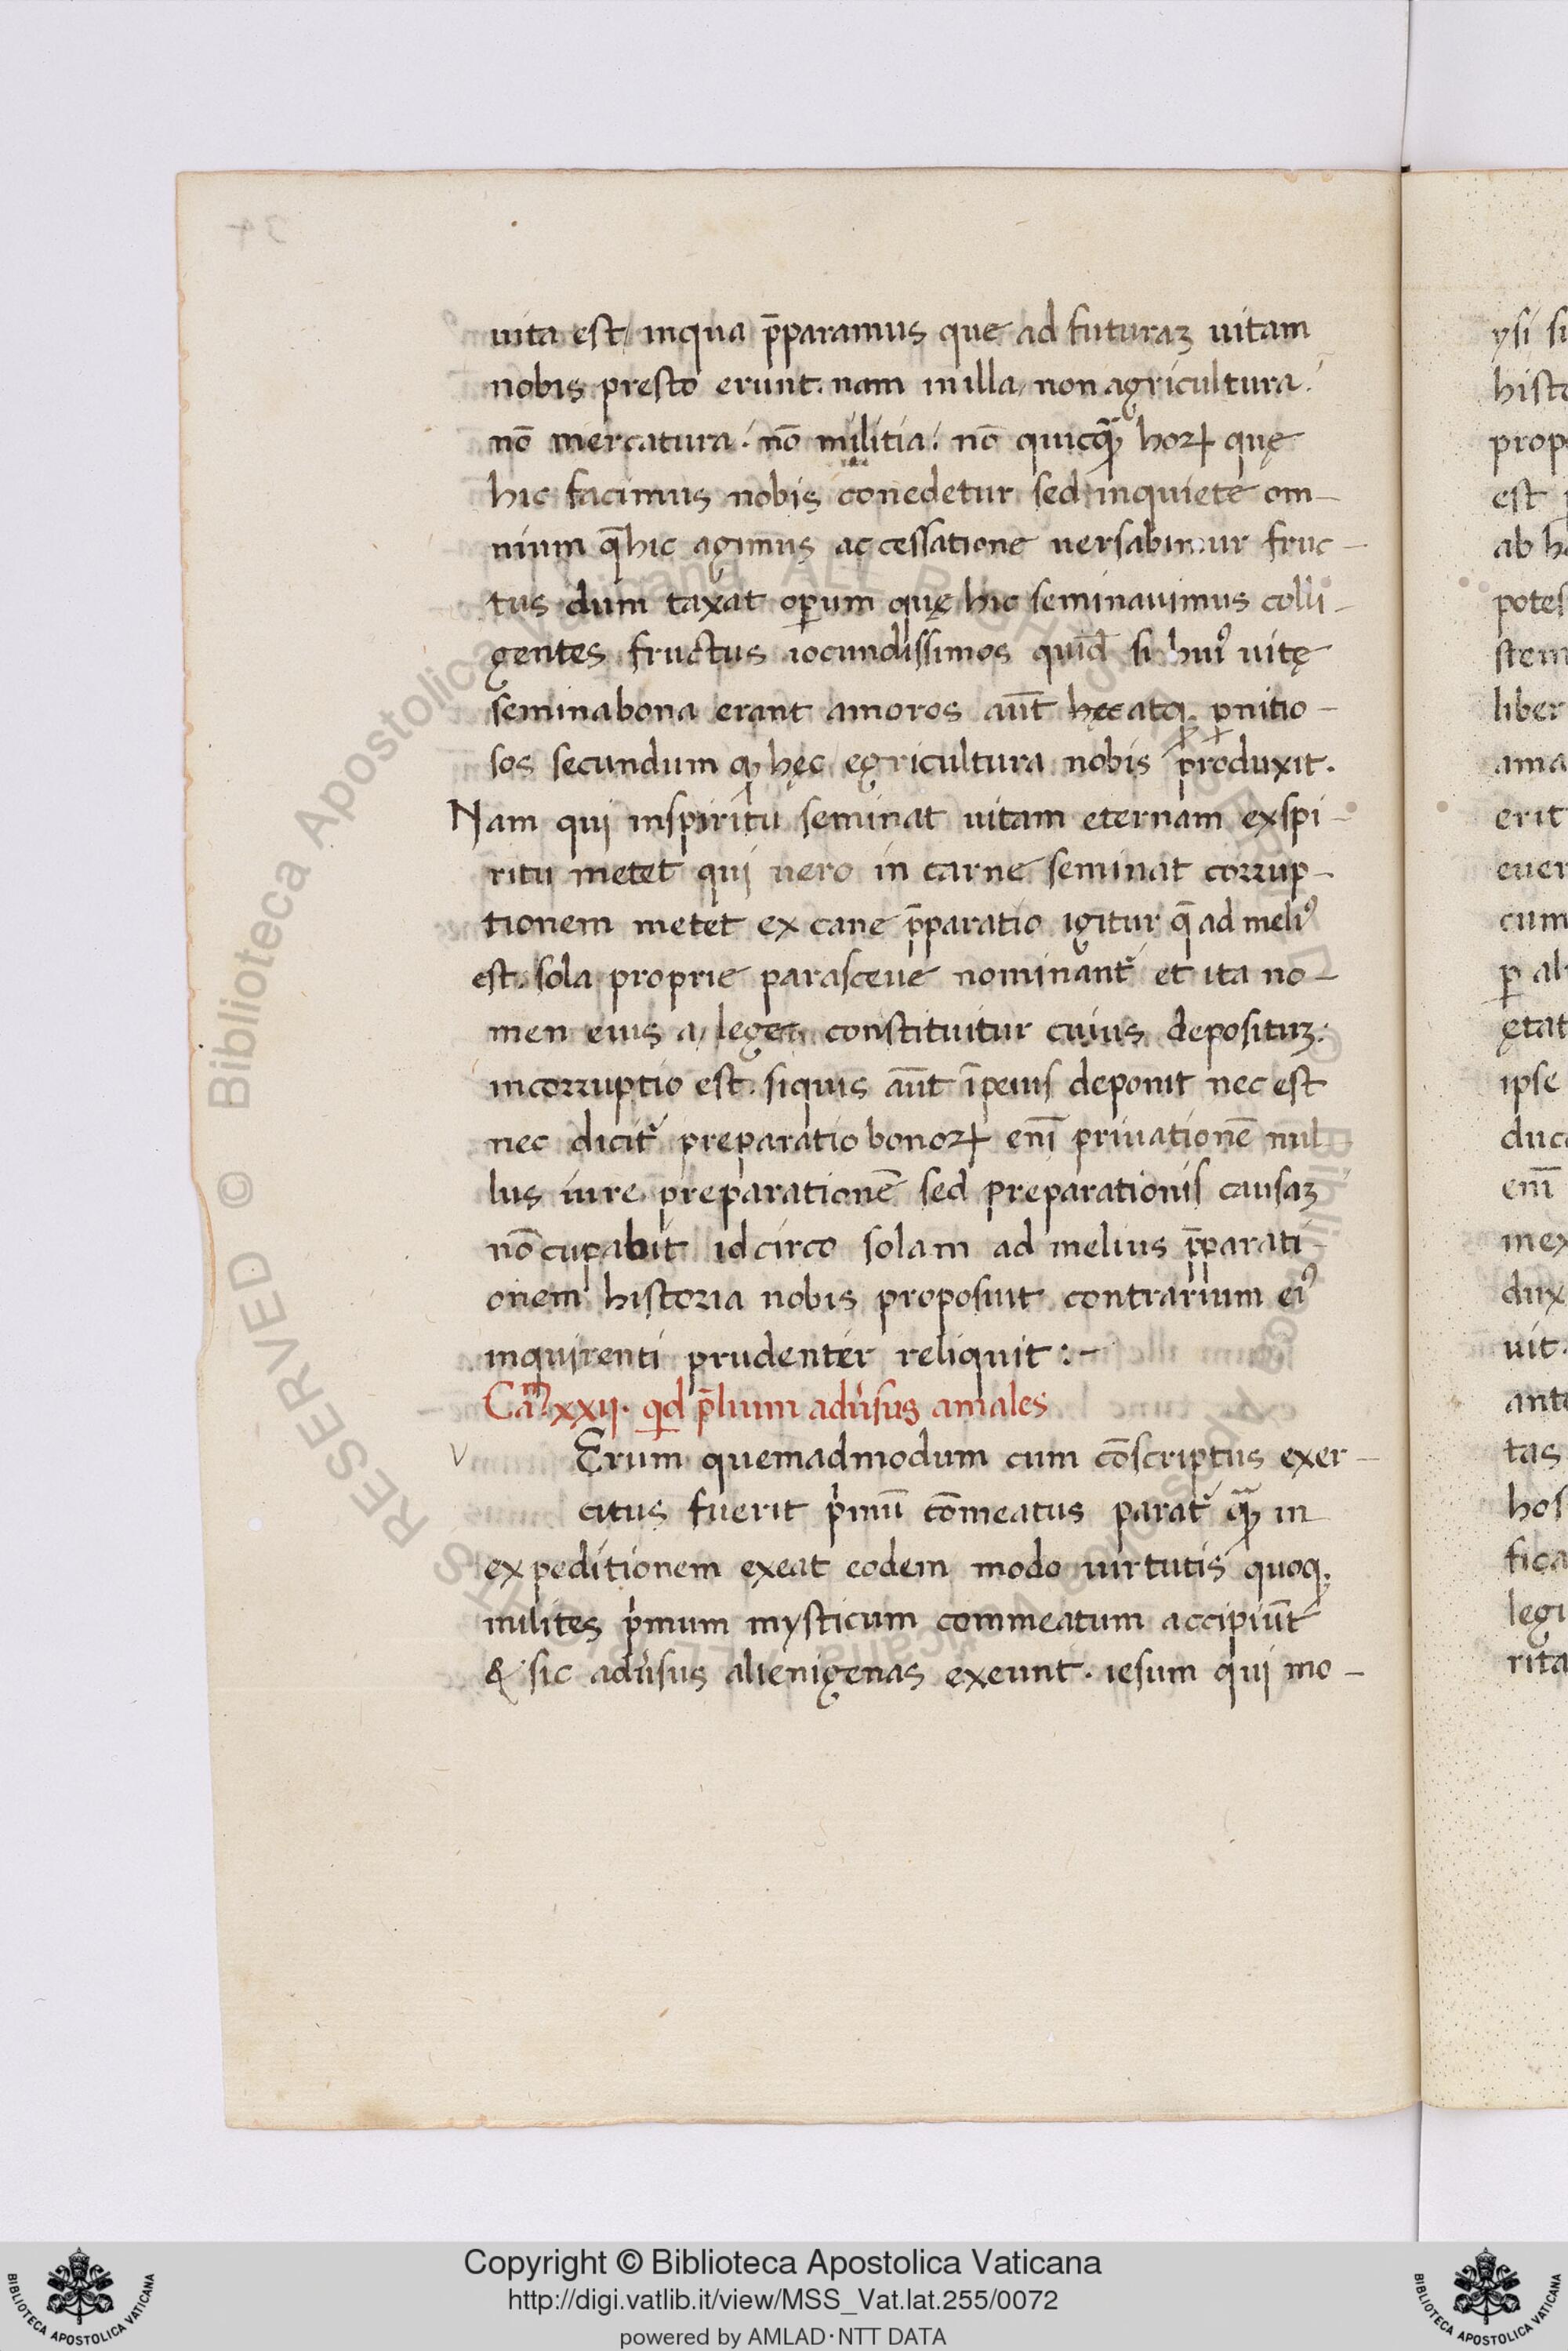 uita est inqua p̄paramus que ad futuraꝫ uitam
nobis presto erunt. nam in illa, non agricultura.
nō mercatura. nō militia. nō quicq̄ꝫ hoꝝ quę
hic facimus nobis conedetur sed inquiete om-
nium q̄ hic agimus ac cessatione uersabimur fruc-
tus dum taxat oꝑum quę hic seminauimus colli-
gentes fructus iocundissimos quid̄ si hui⁹ uitę
semina bona erant amoros aūt hęc atqꝫ ꝑnitio-
sos secundum qꝫ hęc egricultura nobis produxit.
Nam qui inspiritu seminat uitam eternam ex spi-
ritu metet qui uero in carne seminat corrup-
tionem metet ex cane p̄paratio igitur q̄ ad meli⁹
est. sola proprie parasceue nominant᷑ et ita no-
men eius a lege constituitur cuius deposituꝫ.
incorruptio est. siquis aūt īpeius deponit nec est
nec dicit᷑ preparatio bonoꝝ enī priuationē nul
lus iure preparationē sed preparationis causaꝫ
nōcupabit idcirco solam ad melius p̄parati-
onem historia nobis proposuit contrarium ei⁹
inquirenti prudenter reliquit :-
Cam̄. xxij. qd p̄lium adu̓sus amales
v
Erum quemadmodum cum cōscriptus exer-
citus fuerit p̓mū cōmeatus parat᷑ q̄ꝫ in
expeditionem exeat eodem modo uirtutis quoqꝫ
milites p̓mum mysticum commeatum accipiūt
& sic adu̓sus alienigenas exeunt. iesum qui mo-
ysi si
prop
est
potes
stem
liber
ama
erit
cum
ipse
enī
mex
dux
uit.
tas
hos
fica
legi
rita
© Biblioteca Apostolica Vaticana ALL RIGHTS RESERVED
Copyright © Biblioteca Apostolica Vaticana
http://digi.vatlib.it/view/MSS_Vat.lat.255/0072
powered by AMLAD·NTT DATA
BIBLIOTECA APOSTOLICA VATICANA
BIBLIOTECA APOSTOLICA VATICANA